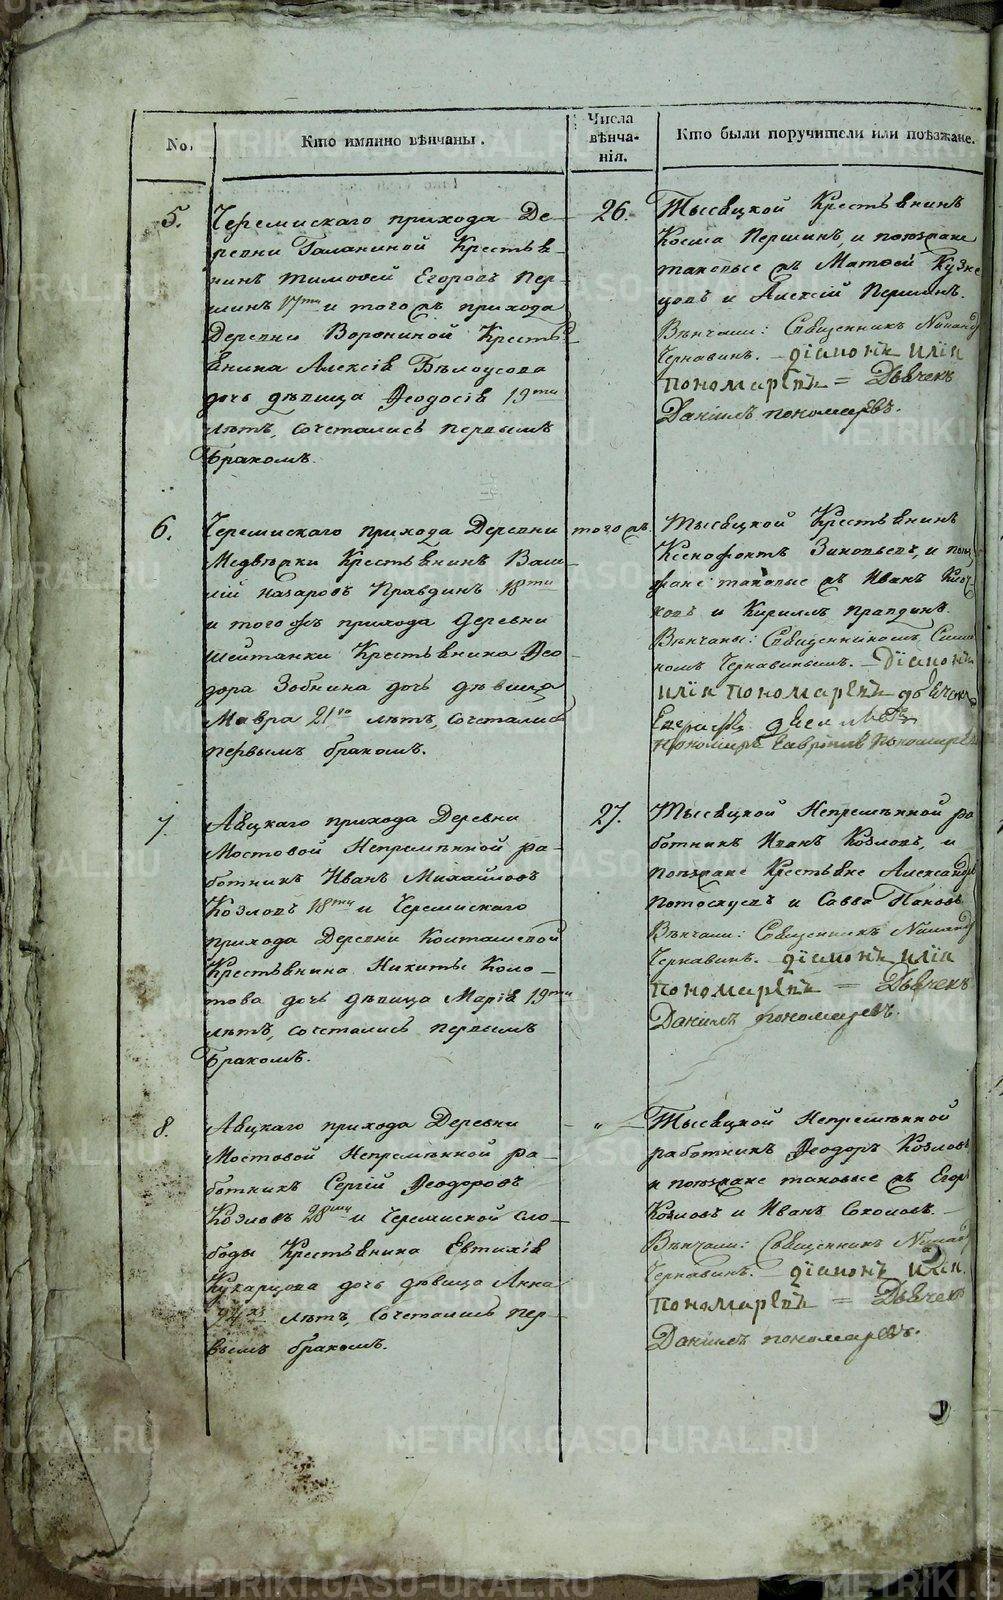 No.
Кто имянно вѣнчаны.
Числа
вѣнча-
нія.
Кто были поручители или поѣзжане.
5.
Черемискаго прихода Де-
ревни Галаниной Крестья-
нинъ Тимофей Егоровъ Пер-
шинъ 17ти и того жъ прихода
Деревни Ворониной Кресть-
янина Алексія Бѣлоусова
дочь дѣвица Ѳеодосія 19ти
лѣтъ, сочетались первымъ
бракомъ.
26.
Тысяцкой Крестьянинъ
Косма Першинъ, и поѣзжане
таковые жъ Матѳей Кузне
цовъ и Алексій Першинъ.
Вѣнчали: Священникъ
Чернавинъ. Діаконъ Илія
Пономаревъ = Дьячекъ
Даніилъ Пономаревъ.
6.
Черемискаго прихода Деревни
Медвѣжки Крестьянинъ Васи-
лій Назаровъ Правдинъ 18ти
и того жъ прихода Деревни
Шайтанки Крестьянина Ѳео-
дора Зобнина дочь дѣвица
Мавра 21го лѣтъ, сочетались
первымъ бракомъ.
того жъ
Тысяцкой Крестьянинъ
Ксенофонтъ Зиновьевъ, и поѣз
жане таковые жъ Иванъ
и Кириллъ Правдинъ.
Вѣнчаны: Священникомъ Симо
номъ Чернавинымъ. Діаконъ
Илія Пономаревъ дьячекъ
Пономаревъ
7.
Аяцкаго прихода Деревни
Мостовой Непремѣнной ра-
ботникъ Иванъ Михайловъ
Козловъ 18ти и Черемискаго
прихода Деревни Колташевой
Крестьянина Никиты Коло-
това дочь дѣвица Марія 19ти
лѣтъ, сочетались первымъ
бракомъ.
27.
Тысяцкой Непремѣнной ра
ботникъ Иванъ Козловъ, и
поѣзжане Крестьяне Александръ
Потоскуевъ и Савва Пановъ
Вѣнчали: Священникъ
Чернавинъ. Діаконъ Илія
Пономаревъ = Дьячекъ
Даніилъ Пономаревъ.
8.
Аяцкаго прихода Деревни
Мостовой Непремѣнной ра-
ботникъ Сергій Ѳеодоровъ
Козловъ 28ми и Черемиской сло-
боды Крестьянина Евтихія
Кухарцова дочь дѣвица Анна
24хъ лѣтъ, сочетались пер-
вымъ бракомъ.
"
Тысяцкой Непремѣнной
работникъ Ѳеодоръ Козловъ
и поѣзжане таковые жъ Егоръ
Козловъ и Иванъ Соколовъ.
Вѣнчали: Священникъ
Чернавинъ. Діаконъ Илія
Пономаревъ = Дьячекъ
Даніилъ Пономаревъ.
METRIKI.GASO-URAL.RU